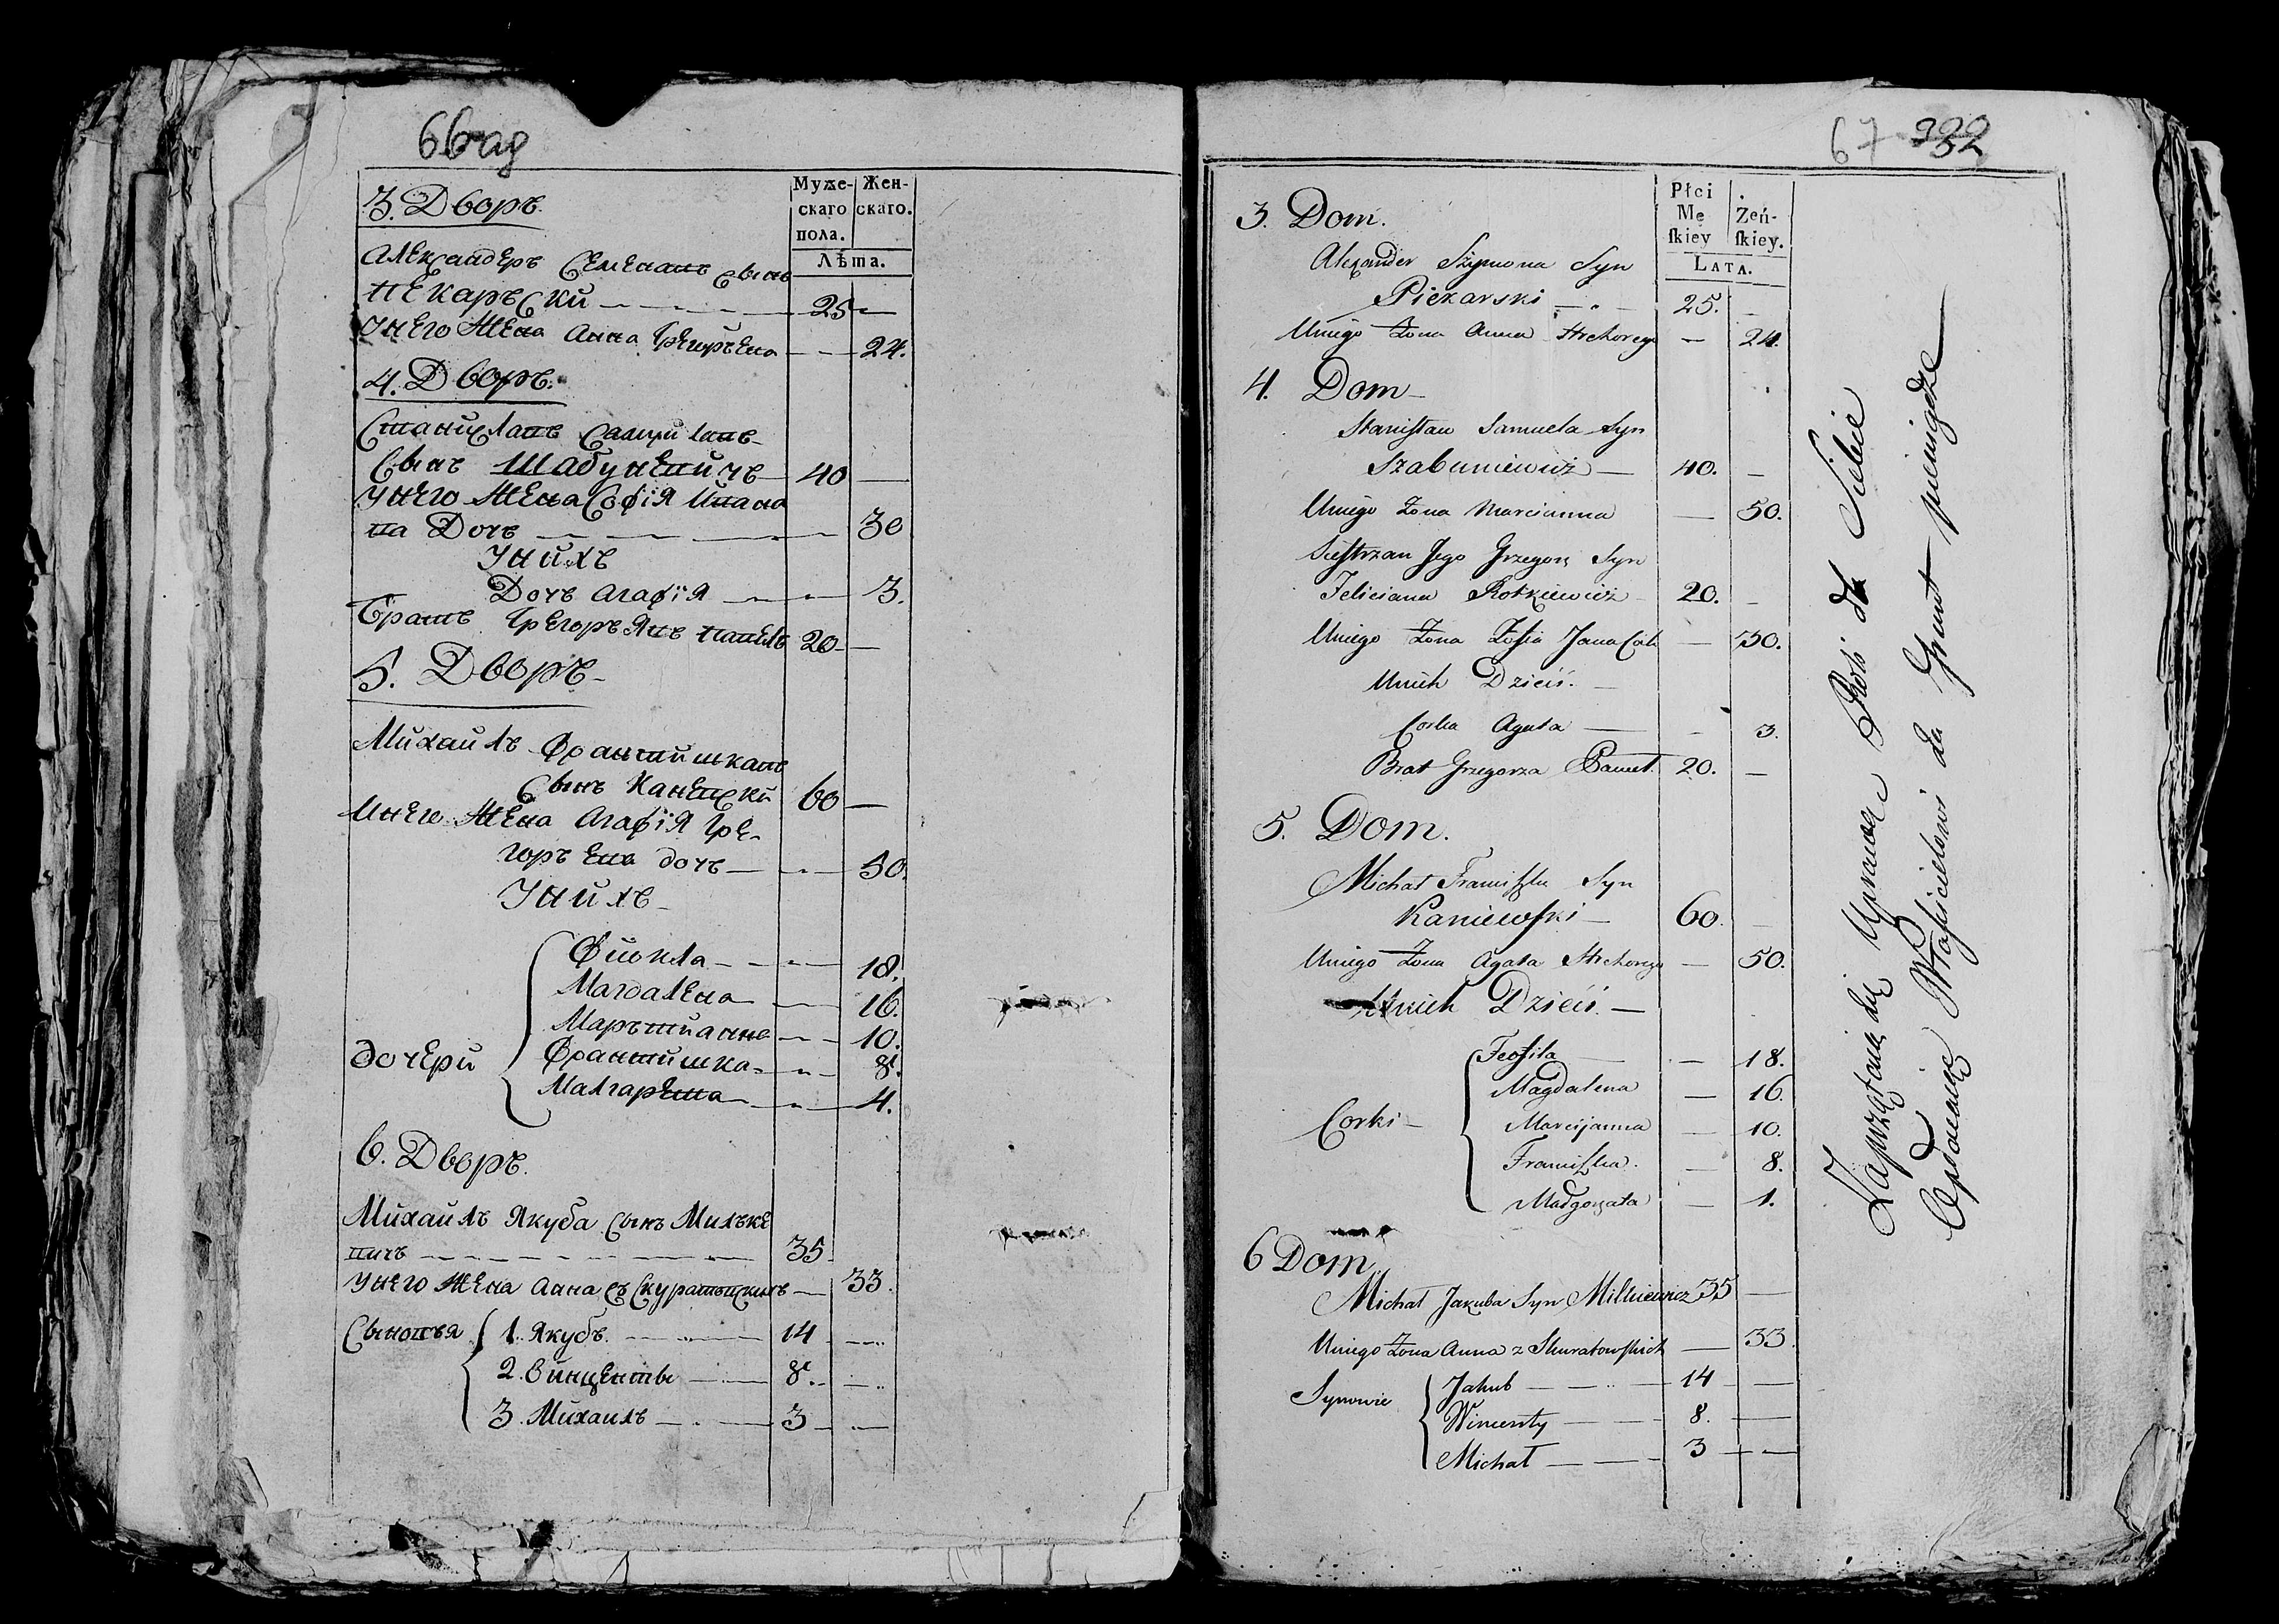 66 ад
Муже- Жен-
скаго скаго.
пола.
Лѣта.
3. Дворъ.
Александеръ Семенавъ сынъ
Пекаръски 25 —
Унего Жена Анна Грегоръева — 24.
4. Дворъ.
Станиславъ Самуйлавъ
Сынъ Шабуневичъ 40 —
Унего Жена Софія Ивана
ва Дочъ — 30
Унихъ
Дочъ Агафія — 3.
Братъ Грегоръявъ Павелъ 20 —
5. Дворъ
Михаилъ Францишкавъ
Сынъ Каневски 60 —
Инего Жена Агафія Гре-
горъева дочъ — 50.
Унихъ
Фиокла — 18.
Магдалена — 16.
Маръцианна — 10.
дочери Францишка — 8.
Малгарета — 4.
6. Дворъ.
Михаилъ Якуба сынъ Милъке
вичъ 35
Унего Жена Анна съ Скуратовскихъ — 33.
Сыновъя 1. Якубъ. 14 —
2. Винценты 8. —
3. Михаилъ 3 —
67 332
Płci
Mę Żeń-
skiey skiey.
LATA.
3. Dom.
Alexander Szymona Syn
Piekarski 25. —
Uniego Żona Anna Hrehorego — 24.
4. Dom
Stanisław Samuela Syn
Szabuniewicz 40. —
Uniego Żona Marcianna — 50.
Siestrzan Jego Grzegorz Syn
Feliciana Rotkiewicz 20. —
Uniego Żona Zofia Jana Cór — 30.
Unich Dzieci.
Corka Agata — 3.
Brat Grzegorza Paweł. 20. —
5. Dom.
Michał Franciszka Syn
Kaniewski 60. —
Uniego Żona Agata Hrehorego — 50.
Unich Dzieci.
Teofila — 18.
Magdalena — 16.
Corki Marcijanna — 10.
Franciszka. — 8.
Małgorzata — 1.
6 Dom.
Michał Jakuba Syn Milkiewicz 35 —
Uniego Żona Anna z Skuratowskich — 33.
Synowie Jakub 14 —
Wincenty 8. —
Michał 3 —
Zaprzątania się Uprawą Roli dla Siebie
Opłacaiąc Właścicielowi za Grunt pieniądze